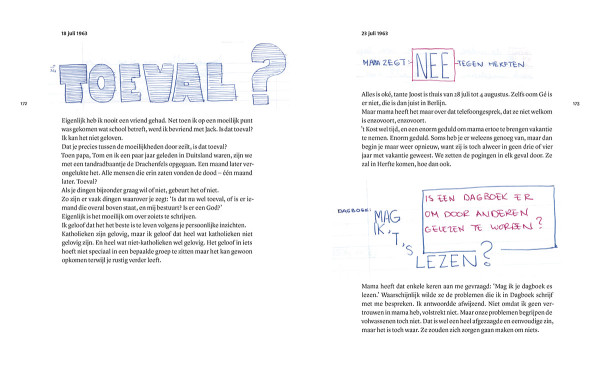 18 juli 1963
TOEVAL?
172
Eigenlijk heb ik nooit een vriend gehad. Net toen ik op een moeilijk punt
was gekomen wat school betreft, werd ik bevriend met Jack. Is dat toeval?
Ik kan het niet geloven.
Dat je precies tussen de moeilijkheden door zeilt, is dat toeval?
Toen papa, Tom en ik een paar jaar geleden in Duitsland waren, zijn we
met een tandradbaantje de Drachenfels opgegaan. Een maand later ver-
ongelukte het. Alle mensen die erin zaten vonden de dood – één maand
later. Toeval?
Als je dingen bijzonder graag wil of niet, gebeurt het of niet.
Zo zijn er vaak dingen waarover je zegt: 'Is dat nu wel toeval, of is er ie-
mand die overal boven staat, en mij bestuurt? Is er een God?'
Eigenlijk is het moeilijk om over zoiets te schrijven.
Ik geloof dat het het beste is te leven volgens je persoonlijke inzichten.
Katholieken zijn gelovig, maar ik geloof dat heel wat katholieken niet
gelovig zijn. En heel wat niet-katholieken wel gelovig. Het geloof in iets
hoeft niet speciaal in een bepaalde groep te zitten maar het kan gewoon
opkomen terwijl je rustig verder leeft.
23 juli 1963
MAMA ZEGT: NEE - TEGEN HERFTEN
173
Alles is oké, tante Joost is thuis van 28 juli tot 4 augustus. Zelfs oom Gé is
er niet, die is dan juist in Berlijn.
Maar mama heeft het maar over dat telefoongesprek, dat ze niet welkom
is enzovoort, enzovoort.
't Kost wel tijd, en een enorm geduld om mama ertoe te brengen vakantie
te nemen. Enorm geduld. Soms heb je er weleens genoeg van, maar dan
begin je maar weer opnieuw, want zij is toch alweer in geen drie of vier
jaar met vakantie geweest. We zetten de pogingen in elk geval door. Ze
zal in Herfte komen, hoe dan ook.
DAGBOEK:
MAG
IK,
'T,
'S
LEZEN?
IS EEN DAGBOEK ER
OM DOOR ANDEREN
GELEZEN TE WORDEN?
Mama heeft dat enkele keren aan me gevraagd: 'Mag ik je dagboek es
lezen.' Waarschijnlijk wilde ze de problemen die ik in Dagboek schrijf
met me bespreken. Ik antwoordde afwijzend. Niet omdat ik geen ver-
trouwen in mama heb, volstrekt niet. Maar onze problemen begrijpen de
volwassenen toch niet. Dat is wel een heel afgezaagde en eenvoudige zin,
maar het is toch waar. Ze zouden zich zorgen gaan maken om niets.